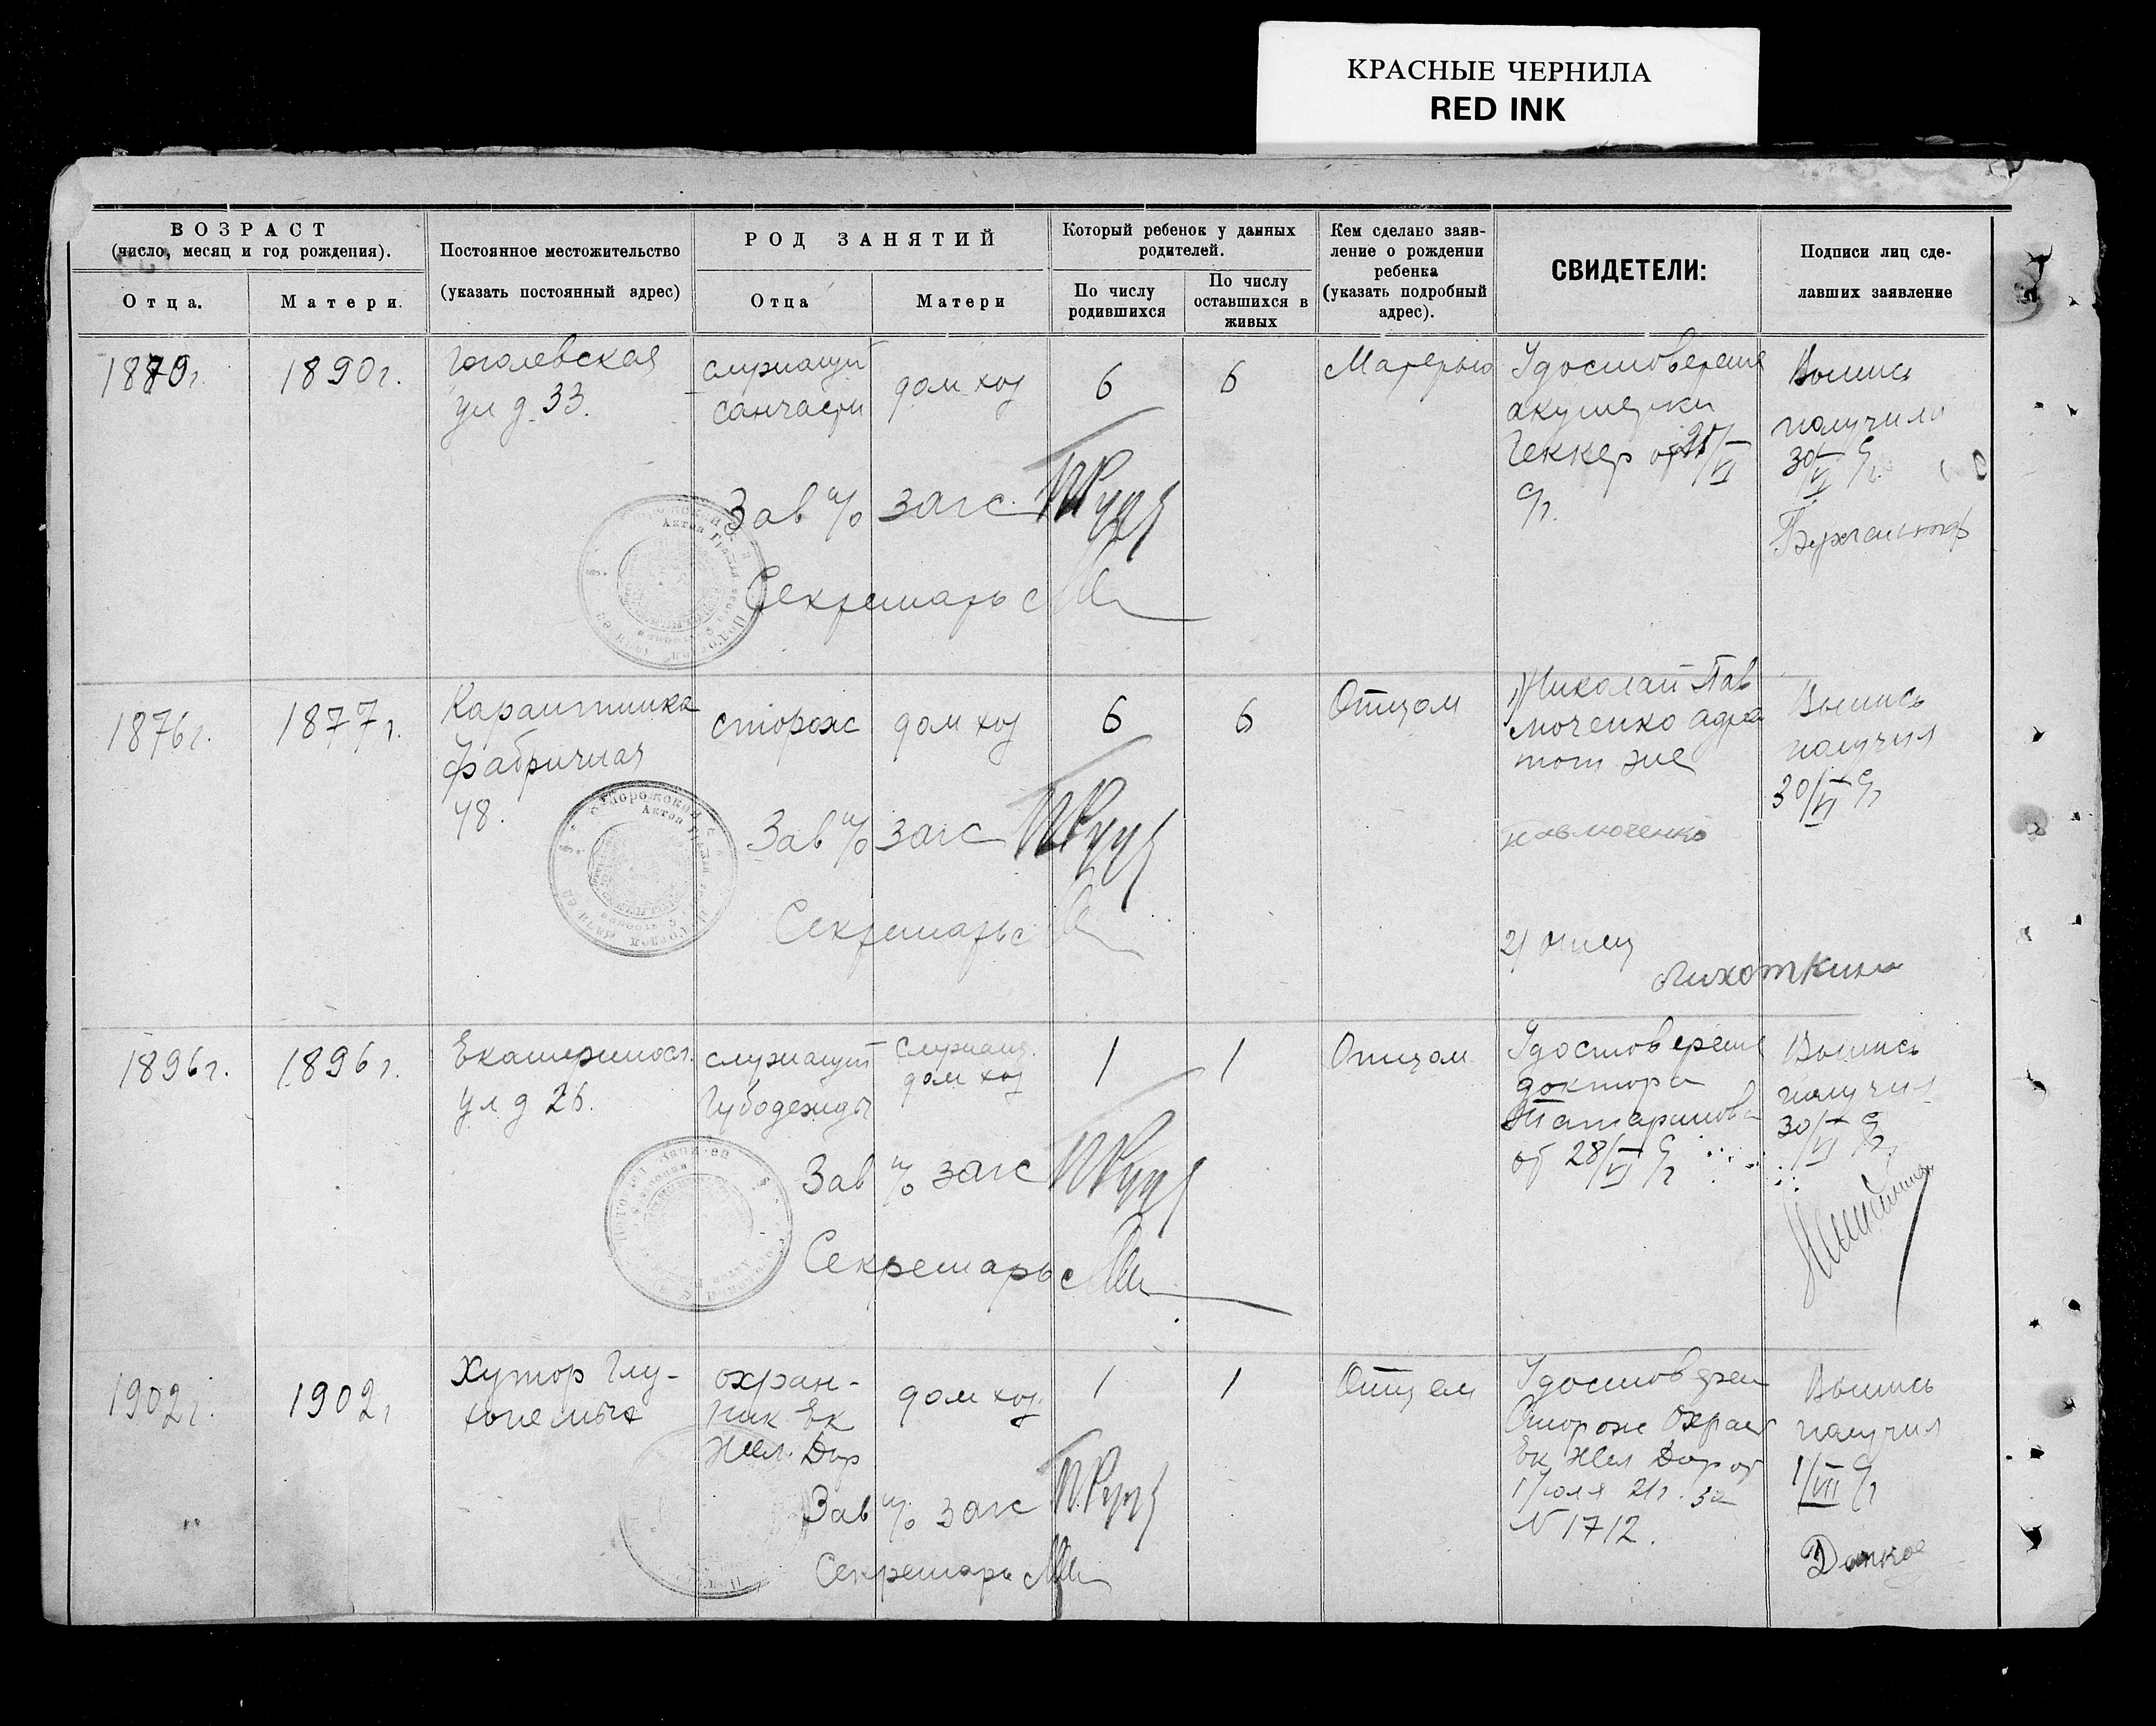 КРАСНЫЕ ЧЕРНИЛА
RED INK
ВОЗРАСТ
(число, месяц и год рождения).
Отца.
Матери.
Постоянное местожительство
(указать постоянный адрес)
РОД ЗАНЯТИЙ
Отца
Матери
Который ребенок у данных
родителей.
По числу
родившихся
По числу
оставшихся в
живых
Кем сделано заяв-
ление о рождении
ребенка
(указать подробный
адрес).
СВИДЕТЕЛИ:
Подписи лиц сде-
лавших заявление
1879г.
1890г.
Гоголевская
ул д. 33.
служащий
санчасти
дом хоз
6
6
Матерью
Удостоверения
акушерки
Геккер от 25/VI
с/г.
Выпись
получила
30/VI с/г.
Зав п/о загс
Секретарь
1876г.
1877г.
Карантинка
Фабричная
48.
сторож
дом хоз
6
6
Отцом
1) Николай Пав
люченко адрес
тот же
Павлюченко
2) отец
Лихоткин
Выпись
получил
30/VI с/г
Зав п/о загс
Секретарь
1896г.
1896г.
Екатериносл.
ул д 26.
служащий
Губодежды
служащ.
дом хоз
1
1
Отцом
Удостоверения
доктора
Татаринова
от 28/VI с/г
Выпись
получил
30/VI с/г
Зав п/о загс
Секретарь
1902г.
1902г
Хутор Глу-
охран-
ник Ек
Жел. Дор
дом хоз.
1
1
Отцем
Удостоверен
Сторож Охраны
Ек Жел Дор от
1 Июля 21г. за
N 1712.
Выпись
получил
1/VII с/г
Зав п/о загс
Секретарь